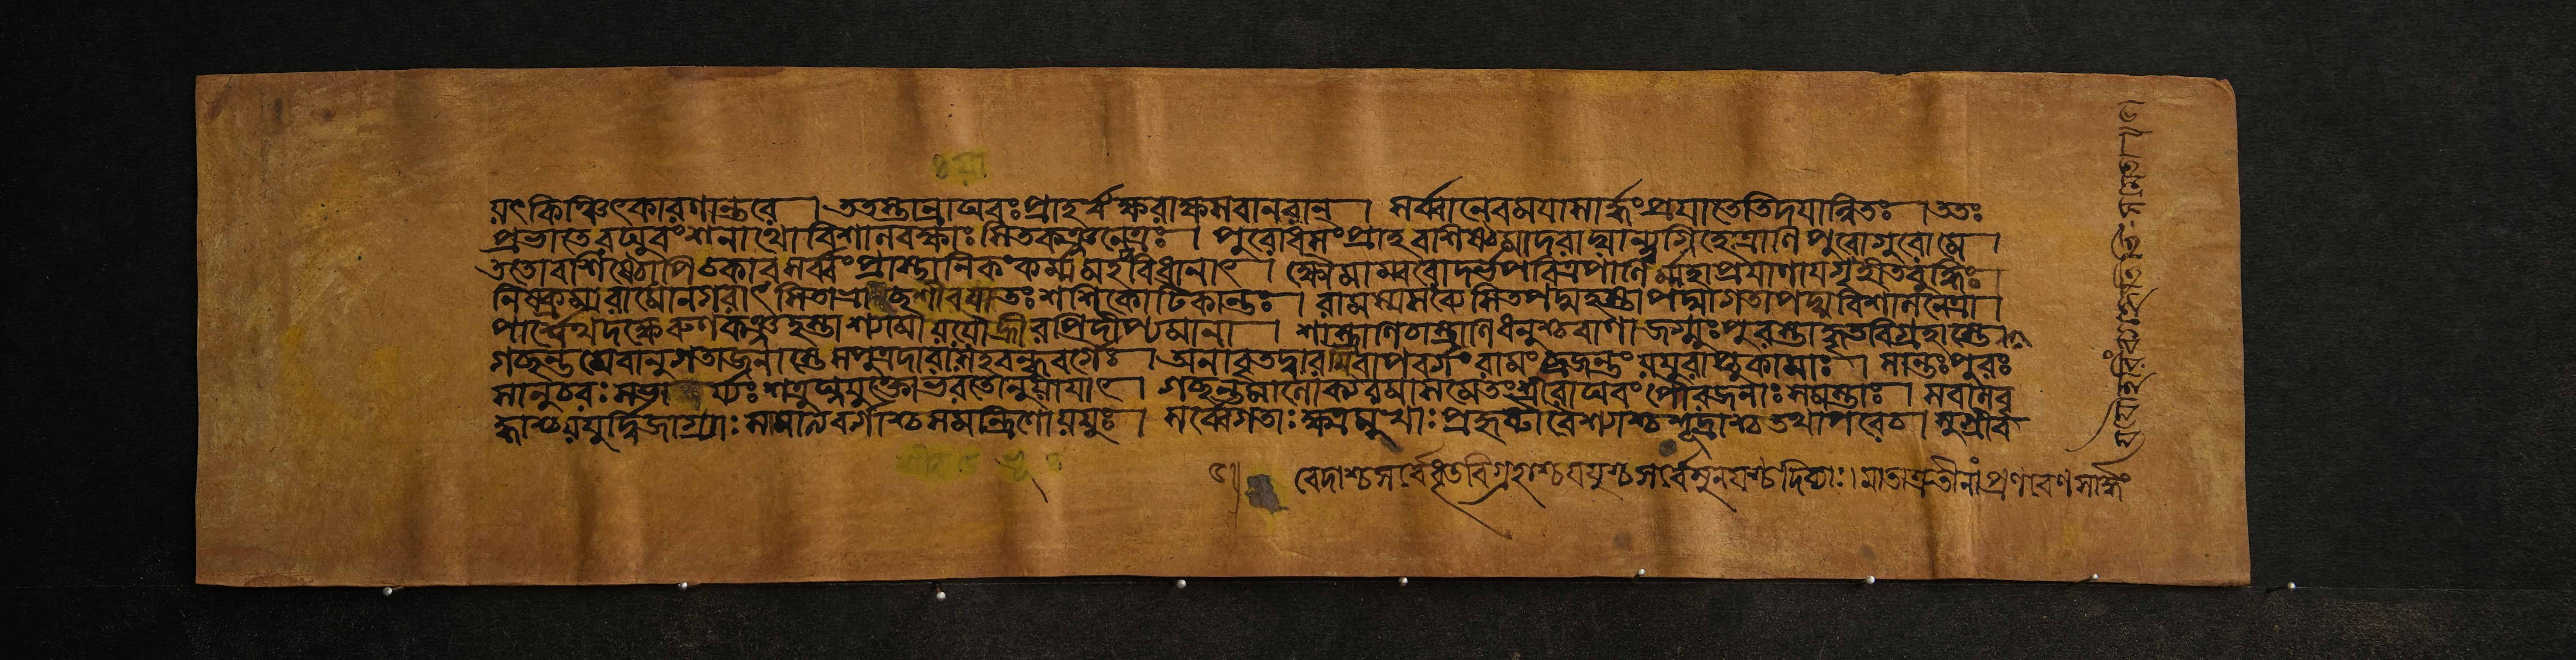 য়ৎকিঞ্চিৎকারণান্তরে । ততস্তান্রাঘবঃপ্রাহঋক্ষরাক্ষসবানরান্ । সর্ব্বানেবময়াসার্দ্ধংপ্রয়াতেতিদয়ান্বিতঃ । ততঃ
প্রভাতেরঘুবংশনাথোবিশালবক্ষাঃসিতকঞ্জনেত্রঃ । পুরোধসংপ্রাহবশিষ্ঠমাদরাদ্যান্ত্বগ্নিহোত্রাণিপুরোগুরোমে ।
ততোবশিষ্ঠোপিচকারসর্ব্বংপ্রাস্থানিকংকর্ম্মমহদ্বিধানাৎ । ক্ষৌমাম্বরোদর্ভপবিত্রপাণির্ম্মহাপ্রয়াণায়গৃহীতবুদ্ধিঃ ।
নিষ্ক্রম্যরামোনগরাৎসিতাভ্রাচ্ছশীবযাতঃশশিকোটিকান্তঃ । রামস্যসব্যেসিতপদ্মহস্তাপদ্মাগতাপদ্মবিশালনেত্রা ।
পার্শ্বেথদক্ষেরুণকঞ্জহস্তাশ্যামাযযৌভূরপিদীপ্যমানা । শাস্ত্রাণিশস্ত্রাণিধনুশ্চবাণাজগ্মুঃপুরস্তাদ্ধৃতবিগ্রহাস্তে
গচ্ছন্তমেবানুগতাজনাস্তেসপুত্রদারাঃসহবন্ধুবর্গৈঃ । অনাবৃতদ্বারমিবাপবর্গংরামংব্রজন্তংযযুরাপ্তকামাঃ । সান্তঃপুরঃ
সানুচরঃসভার্য্যঃশত্রুঘ্নযুক্তোভরতোনুযায়াৎ । গচ্ছন্তমালোক্যরমাসমেতংশ্রীরাঘবংপৌরজনাঃসমস্তাঃ । সবালবৃ
দ্ধাশ্চযযুর্দ্বিজাগ্র্যাঃসামাত্যবর্গাশ্চসমন্ত্রিণোযযুঃ । সর্ব্বেগতাঃক্ষত্রমুখাঃপ্রহৃষ্টাবৈশ্যাশ্চশূদ্রাশ্চতথাপরেচ । সুগ্রীব
বেদাশ্চসর্ব্বেধৃতবিগ্রহাশ্চযযুশ্চসর্ব্বেমুনয়শ্চদিব্যাঃ । মাতাশ্রুতীনাংপ্রণবেণসার্দ্ধং